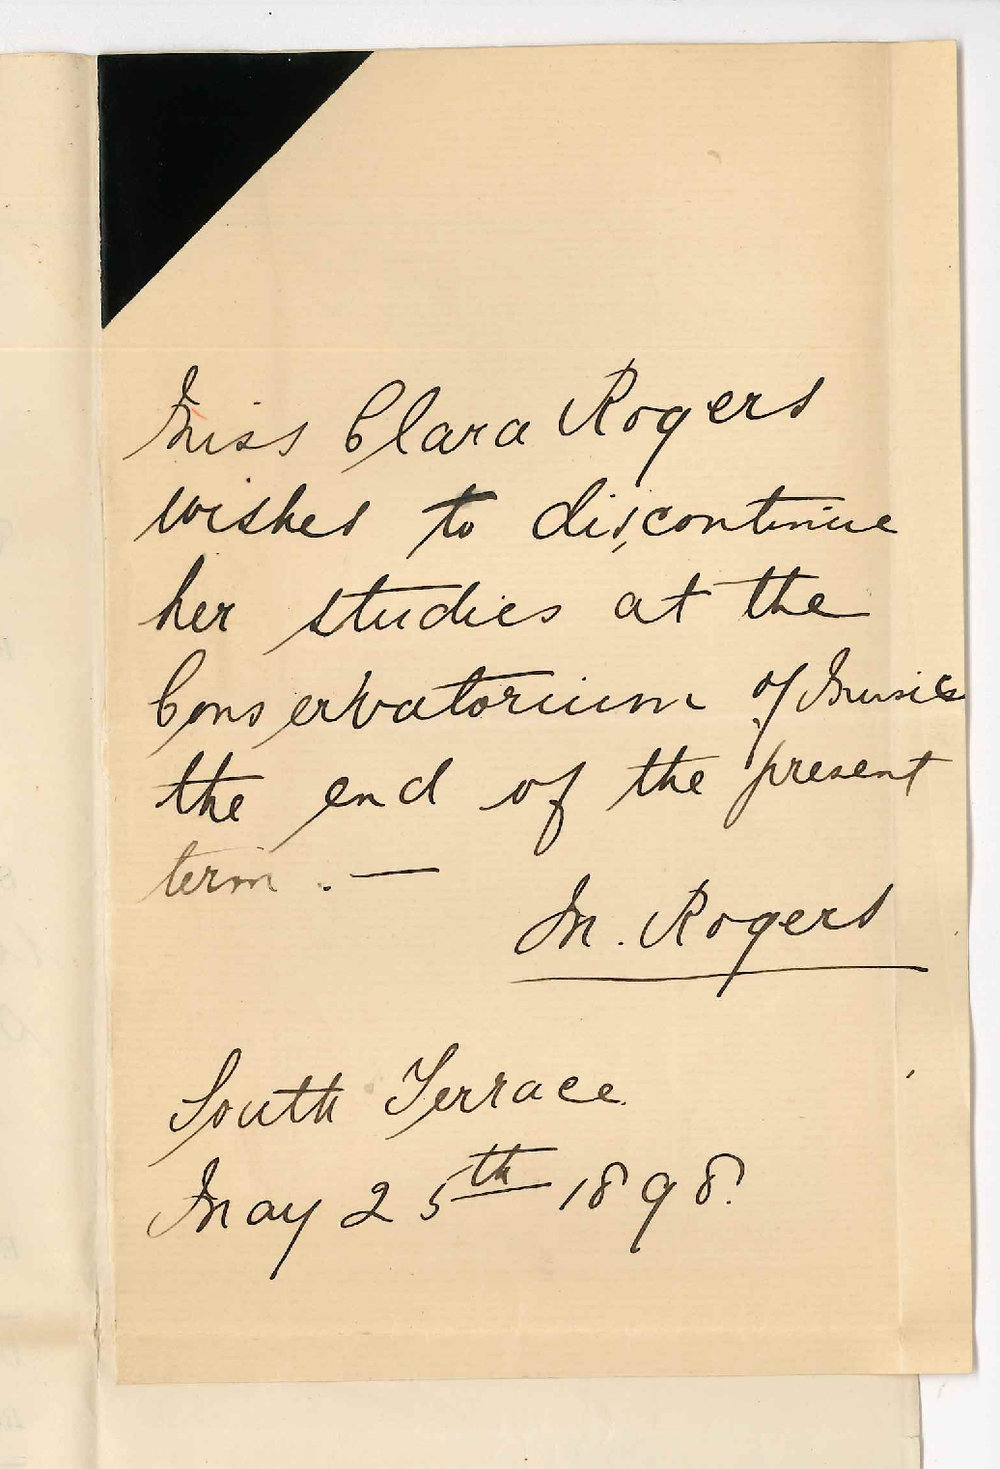 Miss Clara Rogers
wishes to discontinue
her studies at the
Conservatorium of Music
the end of the present
term. —
M. Rogers
South Terrace
May 25th 1898.